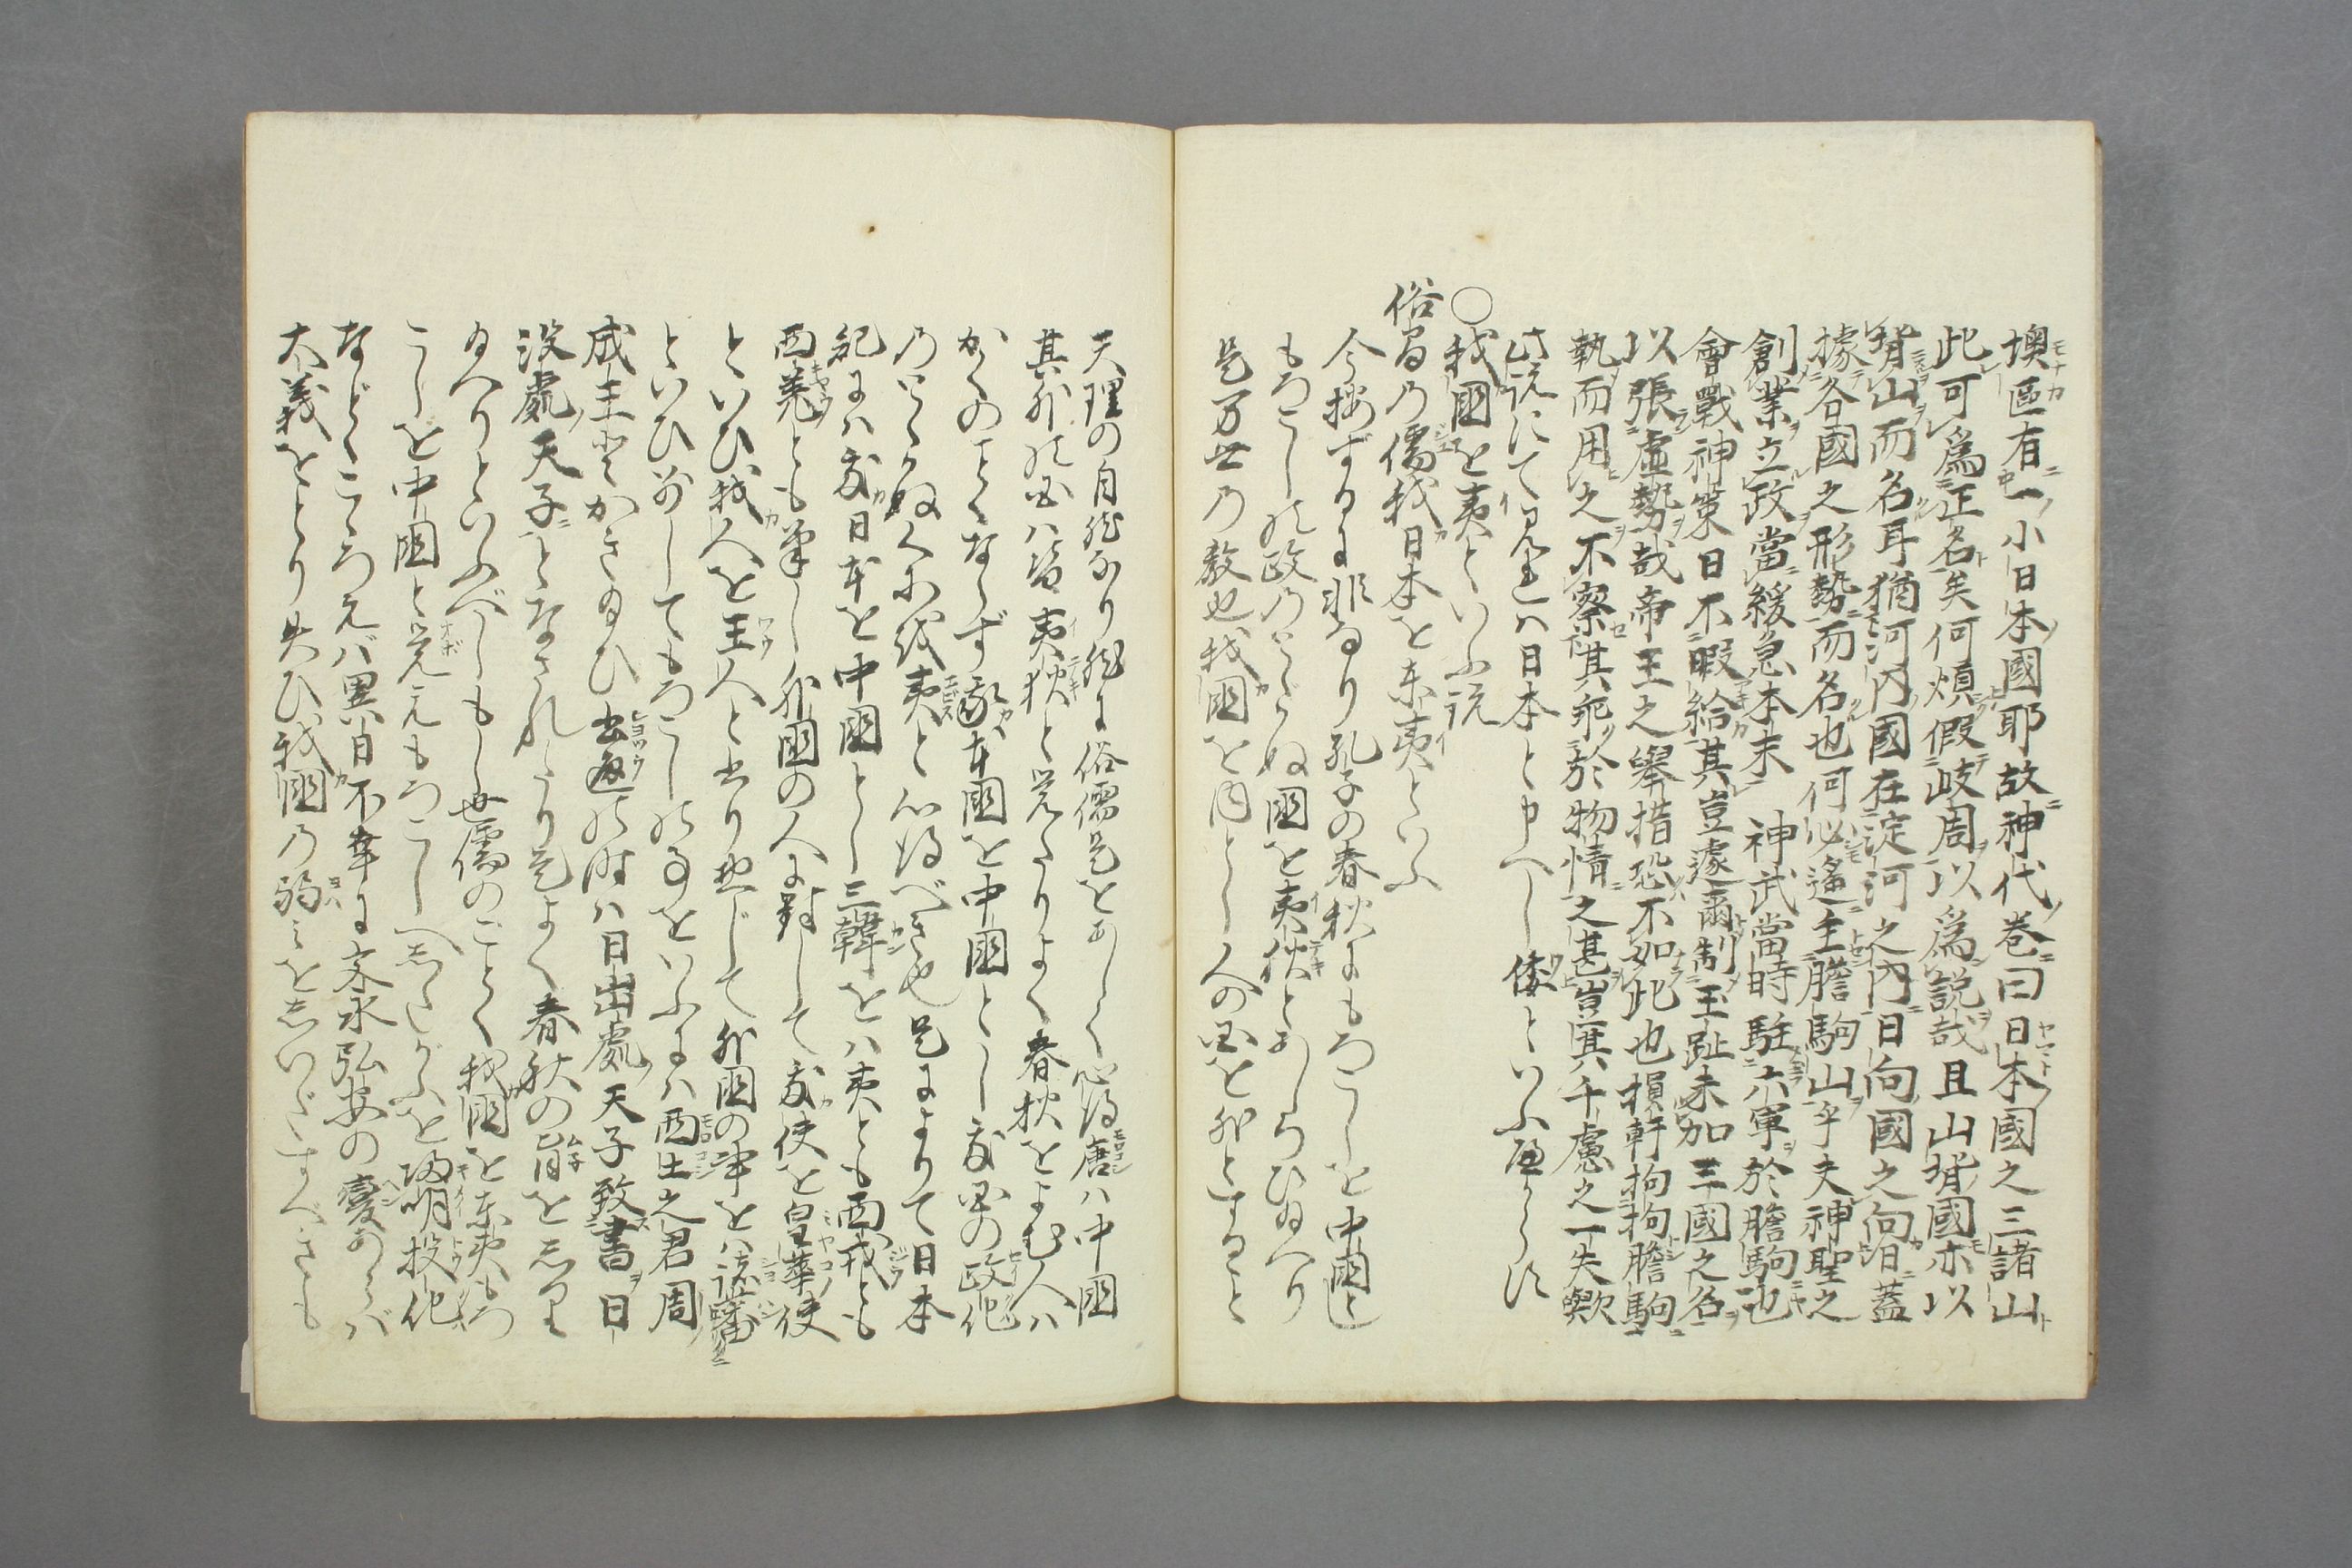 墺區有一小日本國耶故神代卷曰日本國之三諸山
此可爲正名矣何煩假岐周以爲説哉且山背國亦以
背山而名耳猶河内國在淀河之内日向國之向日蓋
據各國之形勢而名也何必遙主膽駒山乎夫神聖之
創業立政當緩急本末 神武當時駐六軍於膽駒也
會戰神策日不暇給其豈遽爾制玉趾未加三國之名
以張虚勢哉帝王之擧措恐不如此也損軒拘拘膽駒
執而用之不察其乖於物情之甚豈其千慮之一失歟
此説にて見レハ日本と申へし倭といふ
○我國を夷といふ説
俗間乃儒我日本を東夷といふ
今按ずるに非なり孔子の春秋にもろこしを中國とし
もろこしの政乃とゝかぬ國を夷狄とあしらひ給へり
是万世乃教也我國を内とし人の國を外とすること
天理の自然なり然るに俗儒是をあしく心得唐ハ中國
其外の國ハ皆夷狄と覚たりよく春秋をよむ人ハ
かくのことくならず我本國を中國とし我國の政化
乃とゝかぬくにを夷と心得べき也是によりて日本
紀にハ我日本を中國とし三韓をハ夷とも西戎とも
西羌とも筆し外國の人に對して我使を皇華使
といひ我人を王人と書り惣じて外國の事をハ諸蕃
といひ別してもろこしの事をいふにハ西土之君周
成王とかき給ひ の時ハ日出處天子致書日
没處天子となされたり是よく春秋の旨を
給へりといふべしもし世儒のことく我國を東夷もろ
こしを中國と覚えもろこしへしたがふを 明投化
などゝこゝろえバ異日不幸に文永弘安の變あらバ
大義をとり失ひ我國乃弱みをしいだすべきも